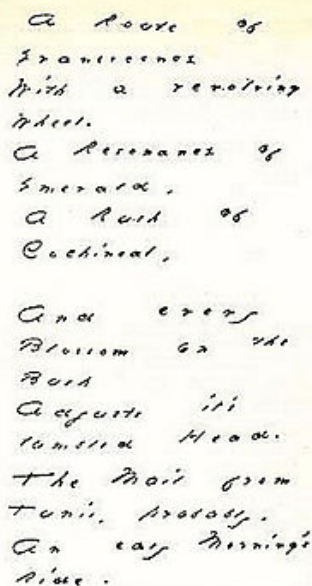 A Route of
Evanescence
With a revolving
Wheel.
A Resonance of
Emerald.
A Rush of
Cochineal,
And every
Blossom on the
Bush
Adjusts its
tumbled Head.
The Mail from
Tunis, probably,
An easy Morning's
Ride.